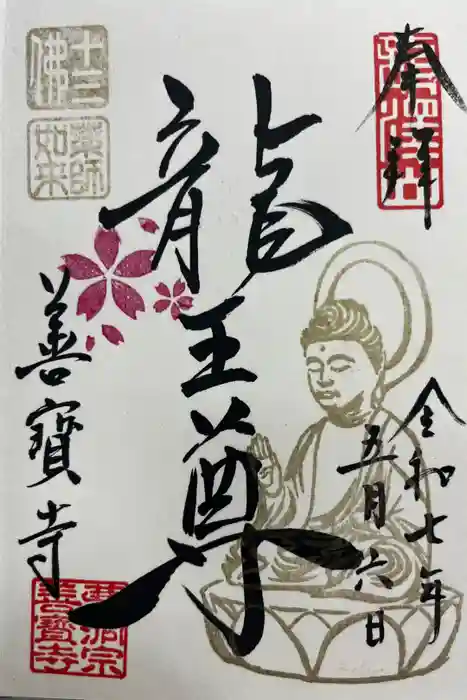 奉拝
令和七年
五月六日
龍王尊
善寳寺
十三佛
薬師如来
曹洞宗
善寳寺